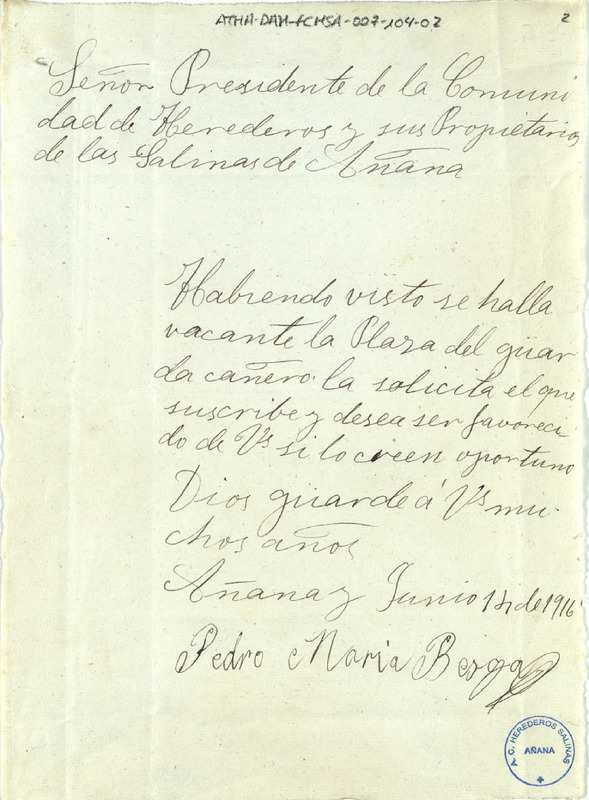 ATHA-DAH-FCHSA-007-104-02
2
Señor Presidente de la Comuni
dad de Herederos y sus Propietarios
de las Salinas de Añana
Habiendo visto se halla
vacante la Plaza del guar
da cañero la solicita el que
suscribe y desea ser favoreci
do de Vs si lo creen oportuno
Dios guarde á Vs mu-
chos años
Añana y Junio 14 de 1916
Pedro Maria Berga
A. C. HEREDEROS SALINAS
AÑANA